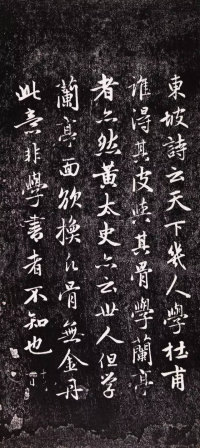 東坡詩云天下幾人學杜甫
誰得其皮與其骨學蘭亭
者亦然黃太史亦云世人但學
蘭亭面欲換凡骨無金丹
此意非學書者不知也